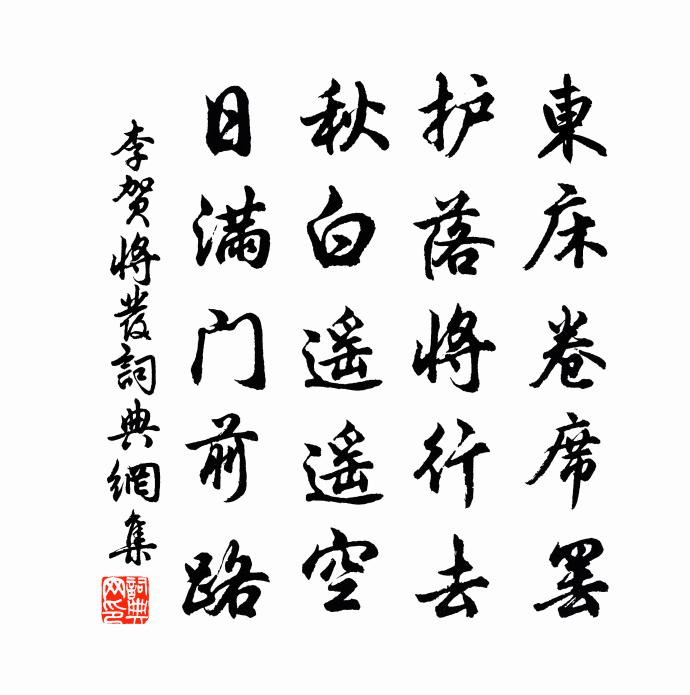 東床卷席罢
护落将行去
秋白遥遥空
日滿门前路
李贺将發詞典網集
詞典网印